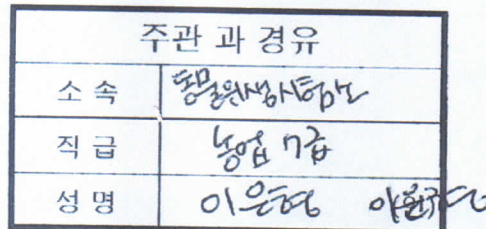 주관 과 경유
소 속 동물위생시험소
직 급 농업 7급
성 명 이은형